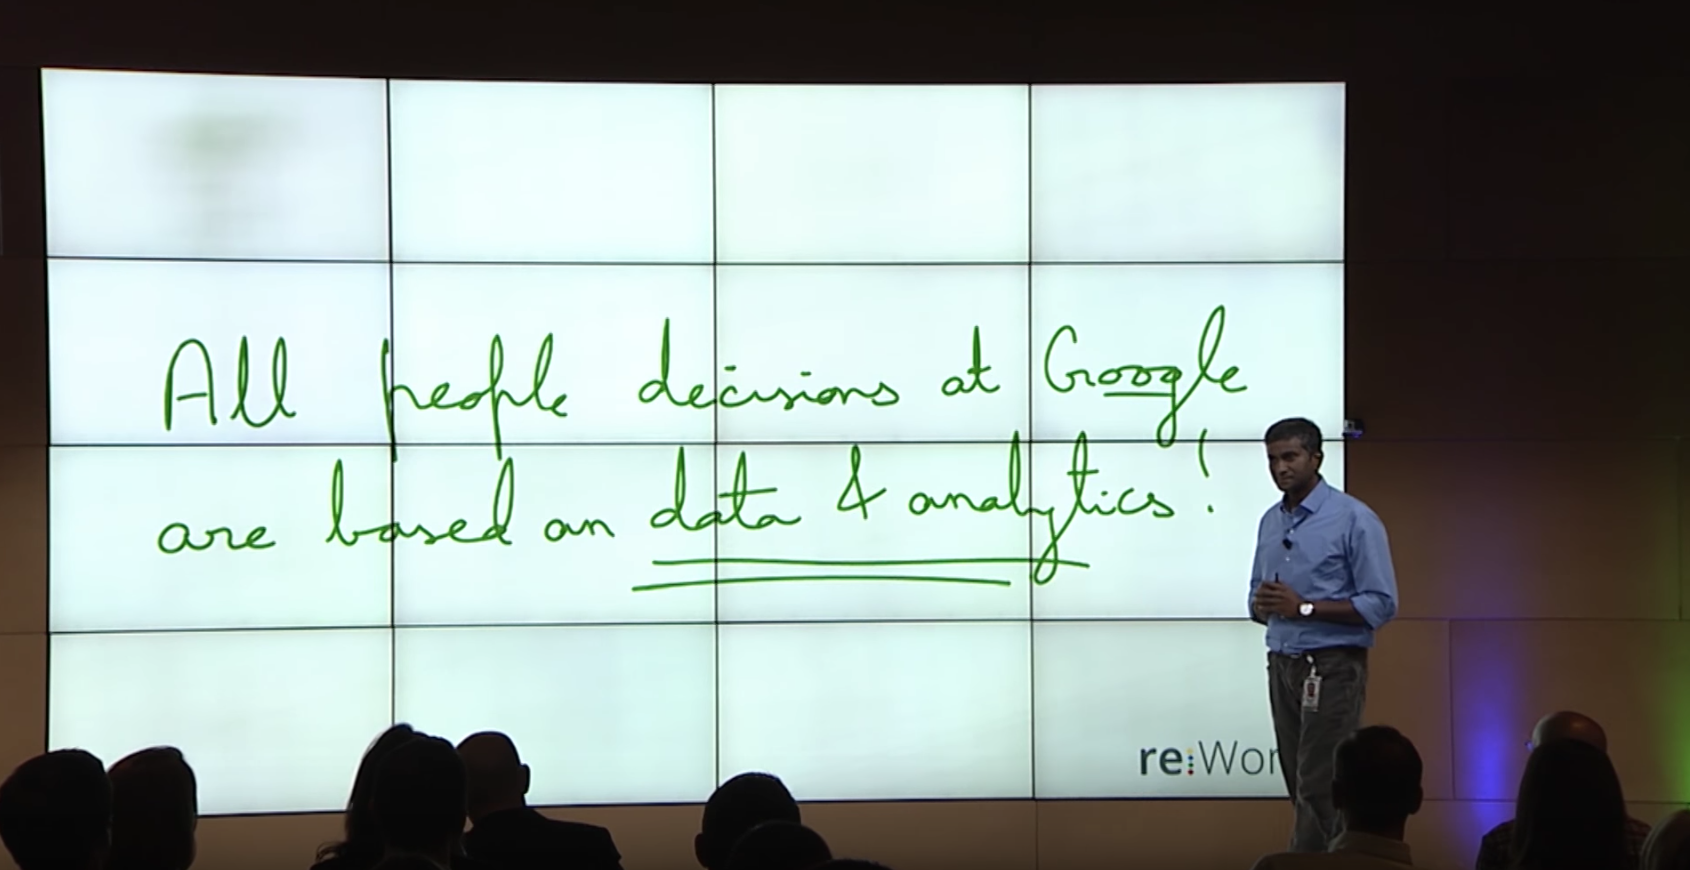 All people decisions at Google
are based on data & analytics!
re:Wor